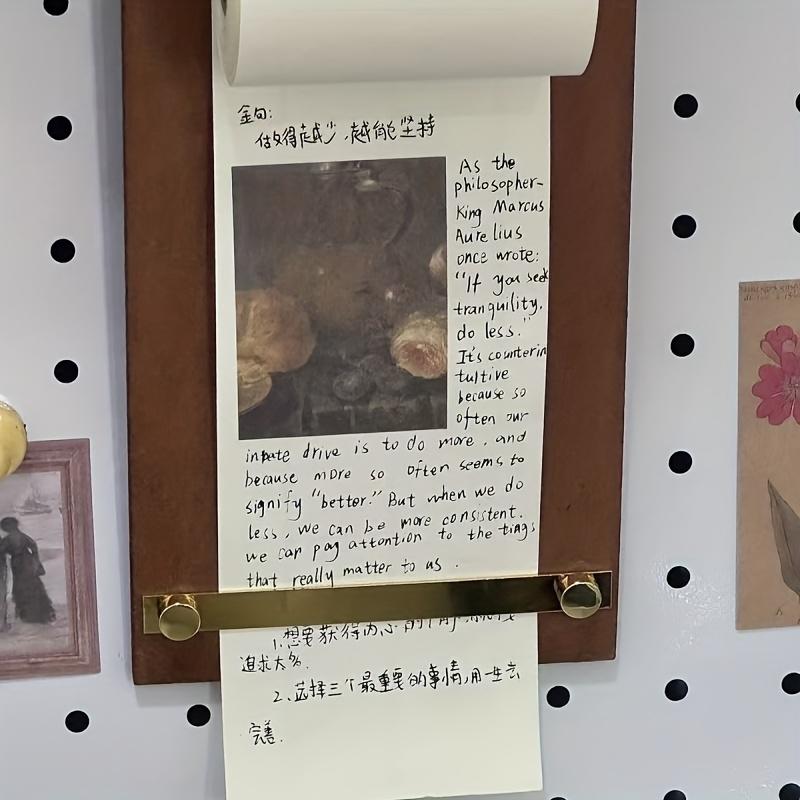 金句:
做得越少,越能坚持
As the
philosopher-
King Marcus
Aurelius
once wrote:
"If you seek
tranquility,
do less."
It's counterin
tuitive
because so
often our
innate drive is to do more, and
because more so often seems to
signify "better." But when we do
less, we can be more consistent.
we can pay attention to the tings
that really matter to us.
1.想要获得内心的
追求太多.
2.选择三个最重要的事情,用一生去
完善.